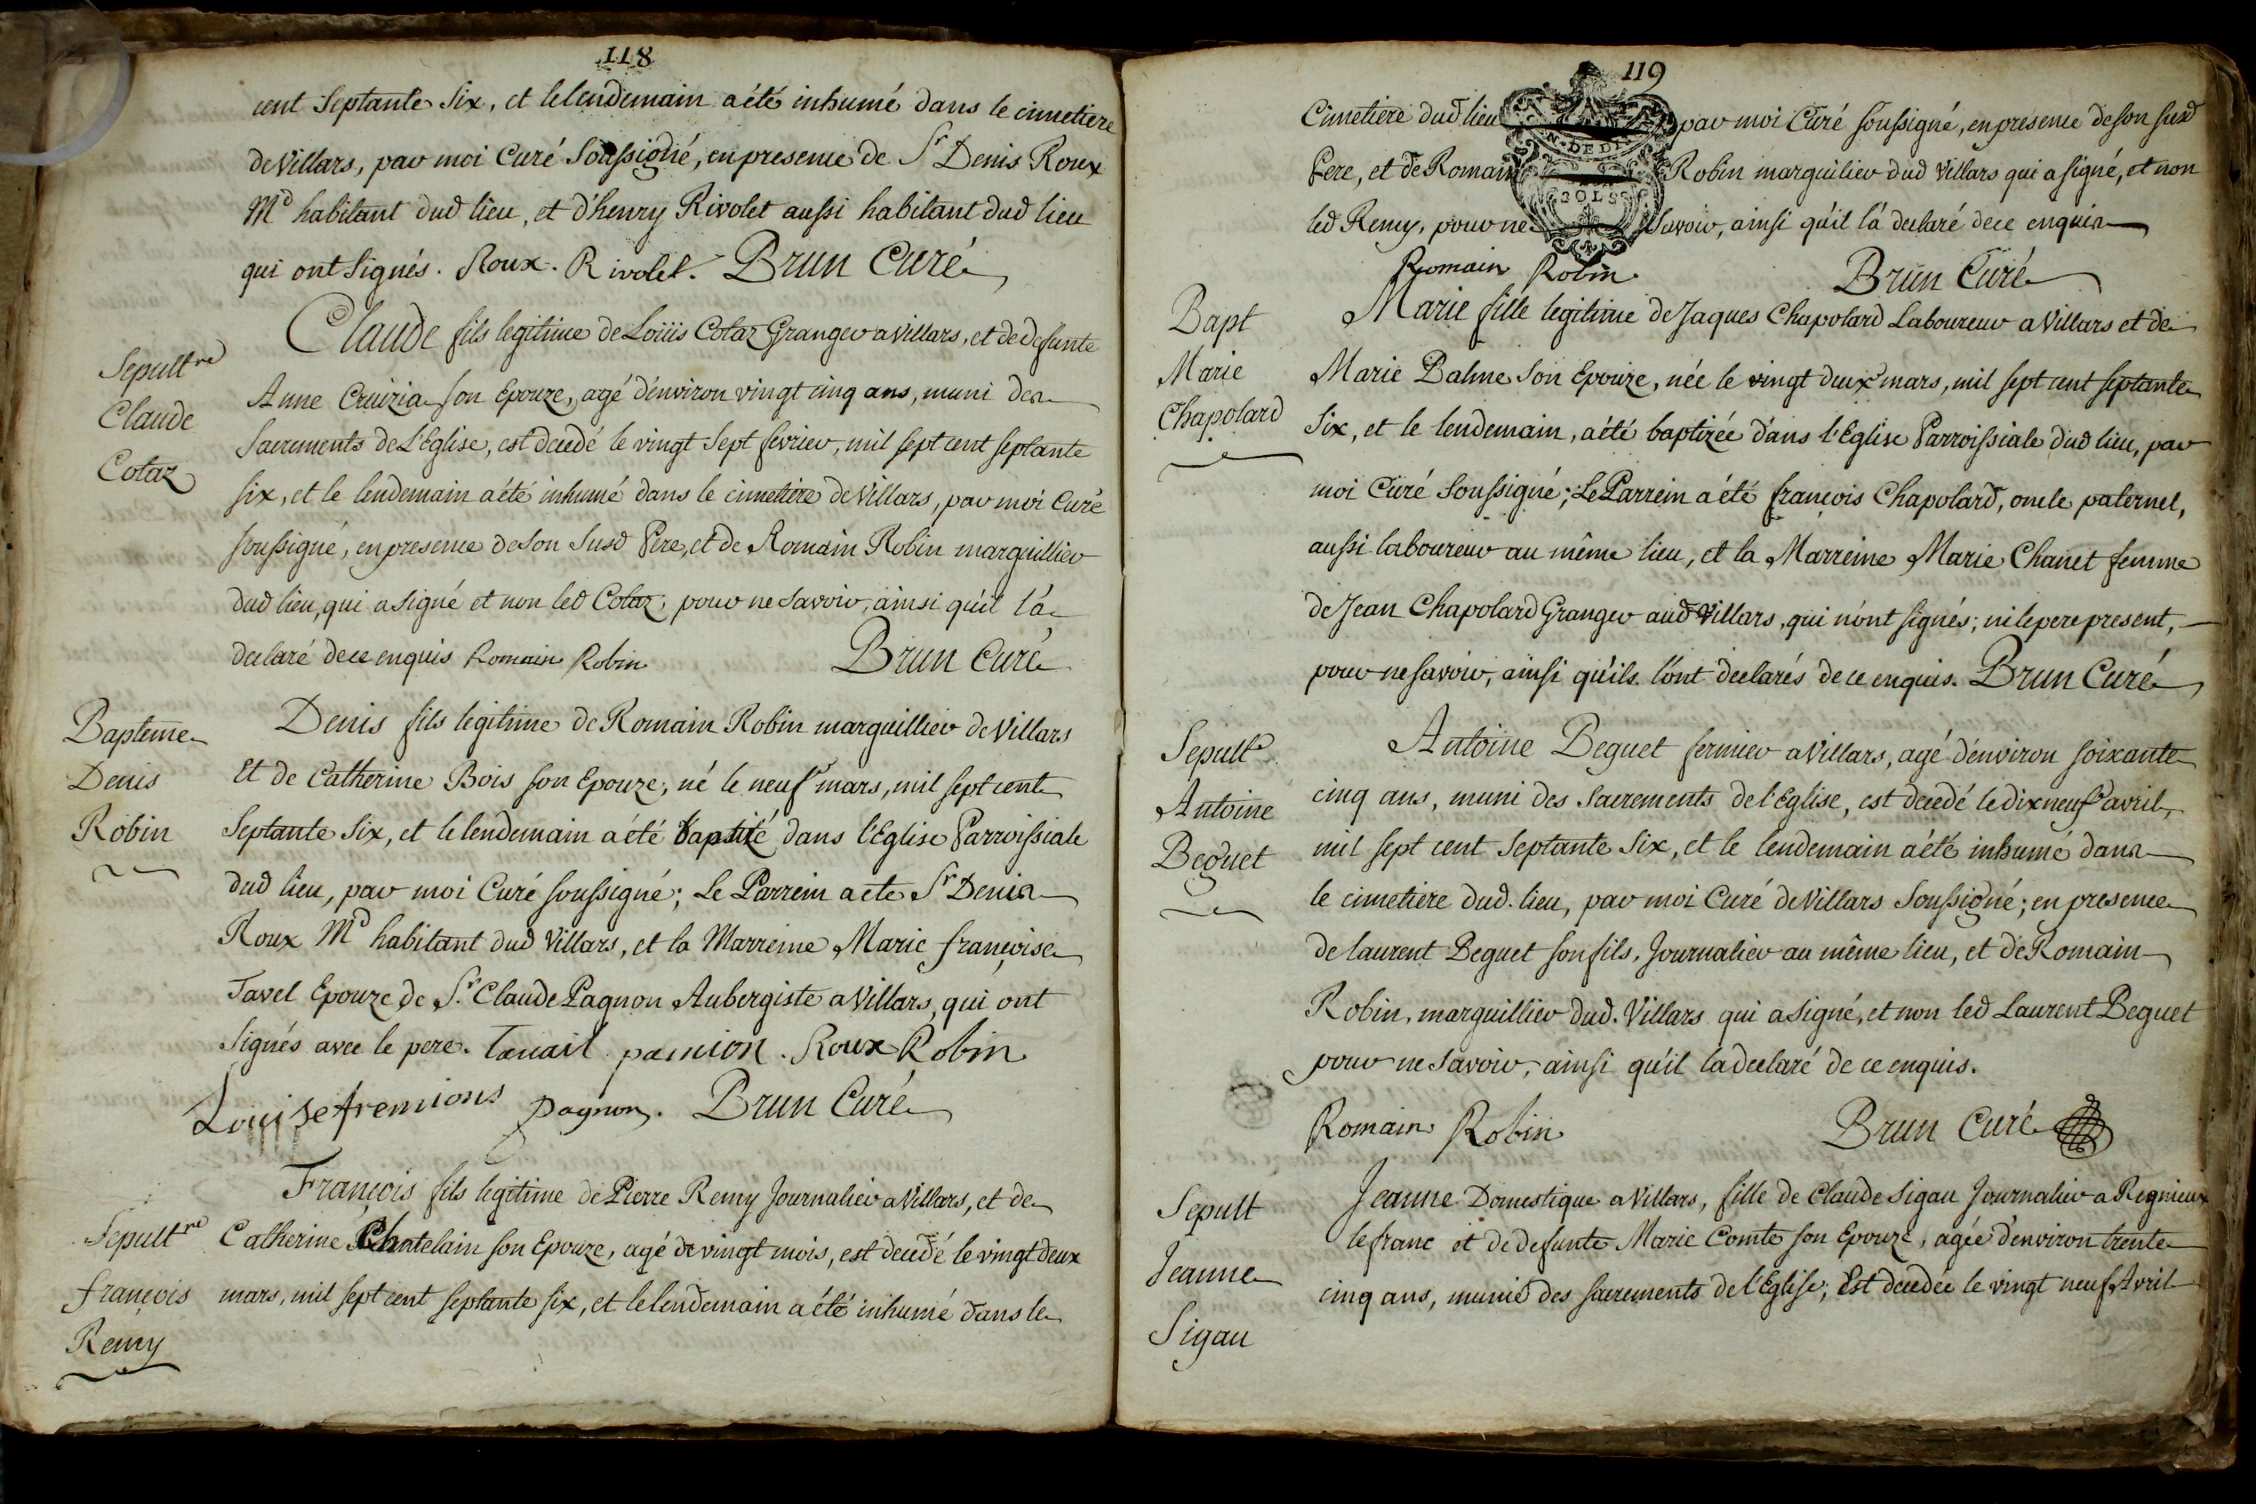 118
cent Septante Six, et le lendemain a été inhumé dans le cimetiere
de Villars, par moi Curé Soussigné, en presence de Sr Denis Roux
Md habitant dud lieu, et d'henry Rivolet aussi habitant dud lieu
qui ont Signés. Roux. Rivolet. Brun Curé
Sepultre
Claude
Cotaz
Claude fils legitime de Loüis Cotaz Granger a Villars, et de defunte
Anne Cruizia son Epouze, agé d'environ vingt cinq ans, muni des
Sacrements de L'Eglise, est decedé le vingt Sept fevrier, mil sept cent septante
six, et le lendemain a été inhumé dans le cimetiere de Villars, par moi Curé
soussigné, en presence de son Susd Pere, et de Romain Robin marguillier
dud lieu, qui a signé et non led Cotaz, pour ne Savoir, ainsi qu'il l'a
declaré de ce enquis Romain Robin Brun Curé
Bapteme
Denis
Robin
Denis fils legitime de Romain Robin marguillier de Villars
Et de Catherine Bois son Epouze, né le neuf mars, mil sept cent
Septante Six, et le lendemain a été baptizé dans l'Eglise Parroissiale
dud lieu, par moi Curé soussigné; Le Parrein a ete Sr Denis
Roux Md habitant dud Villars, et la Marreine Marie françoise
Tavel Epouze de Sr. Claude Pagnon Aubergiste a Villars, qui ont
Signés avec le pere. Tavail panion. Roux Robin
Louise fremions Pagnon. Brun Curé
Sepultre
françois
Remy
François fils legitime de Pierre Remy Journalier a Villars, et de
Catherine Chatelain son Epouze, agé de vingt mois, est decedé le vingt deux
mars, mil sept cent septante six, et le lendemain a été inhumé dans le
119
Cimetiere dud lieu par moi Curé soussigné, en presence de son susd
N. DE DI
Pere, et de Romain Robin marguilier dud Villars qui a signé, et non
SOLS
led Remy, pour ne Savoir, ainsi qu'il l'a declaré de ce enquis
Romain Robin Brun Curé
Bapt
Marie
Chapolard
Marie fille legitime de Jaques Chapolard Laboureur a Villars et de
Marie Balme Son Epouze, née le vingt deux mars, mil sept cent septante
Six, et le lendemain, a été baptizée dans l'Eglise Parroissiale dud lieu, par
moi Curé Soussigné; Le Parrein a été françois Chapolard, oncle paternel,
aussi laboureur au même lieu, et la Marreine Marie Chanet femme
de Jean Chapolard Granger aud Villars, qui n'ont signés; ni le pere present,
pour ne savoir, ainsi qu'ils l'ont declarés de ce enquis. Brun Curé
Sepultre
Antoine
Beguet
Antoine Beguet fermier a Villars, agé d'environ soixante
cinq ans, muni des Sacrements de l'Eglise, est decedé le dix neuf avril,
mil sept cent Septante Six, et le lendemain a été inhumé dans
le cimetiere dud. lieu, par moi Curé de Villars Soussigné; en presence
de laurent Beguet son fils, Journalier au même lieu, et de Romain
Robin, marguillier dud. Villars qui a signé, et non led Laurent Beguet
pour ne Savoir, ainsi qu'il la declaré de ce enquis.
Romain Robin Brun Curé
Sepult
Jeanne
Sigau
Jeanne Domestique a Villars, fille de Claude Sigau Journalier a Regnieux
le franc et de defunte Marie Comte son Epouze, agée d'environ trente
cinq ans, munie des sacrements de l'Eglise; Est decedée le vingt neuf Avril